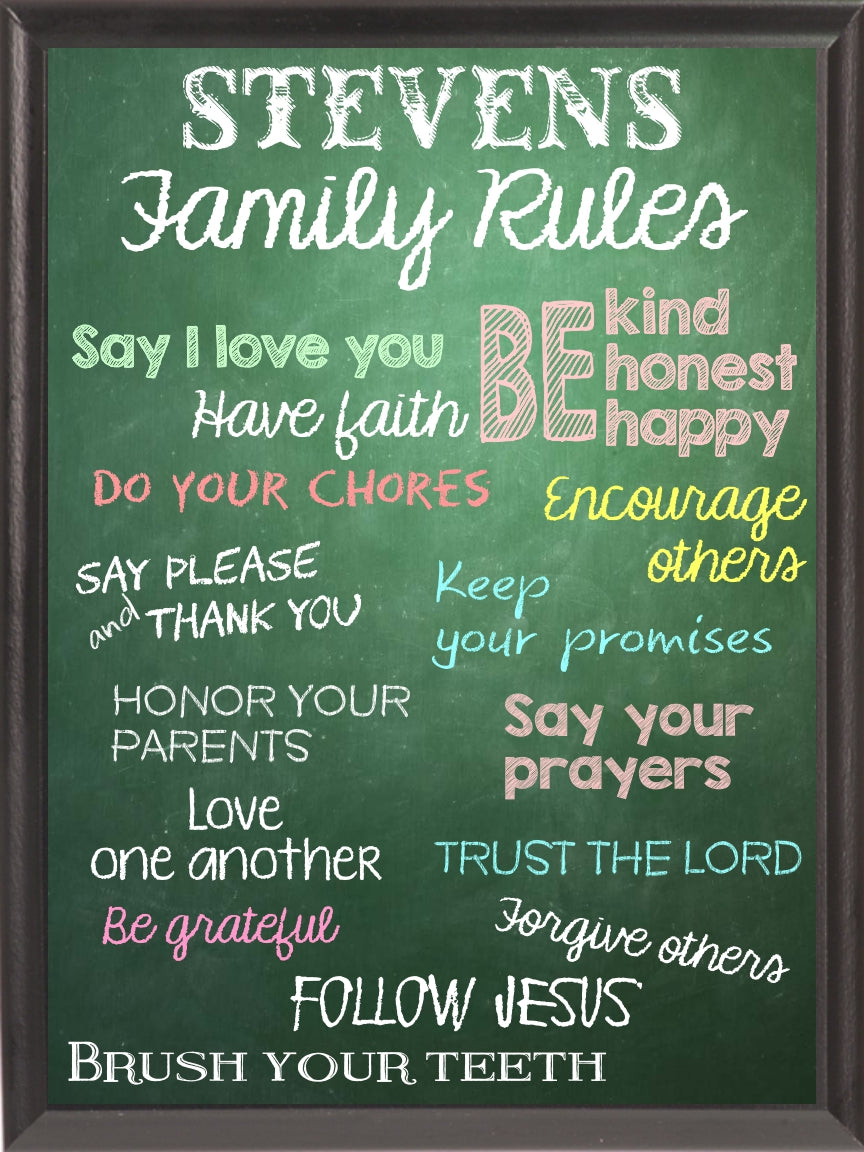 STEVENS
Family Rules
Say I love you
BE kind
honest
happy
Have faith
DO YOUR CHORES
Encourage
others
SAY PLEASE
and THANK YOU
Keep
your promises
HONOR YOUR
PARENTS
Say your
prayers
Love
one another
TRUST THE LORD
Be grateful
Forgive others
FOLLOW JESUS
BRUSH YOUR TEETH